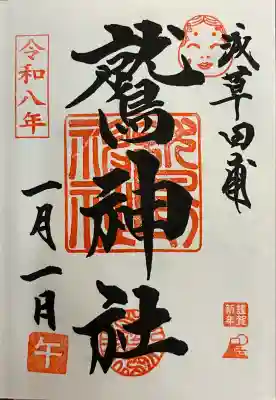 浅草田甫
鷲神社
令和八年
一月一月
謹賀
新年
午